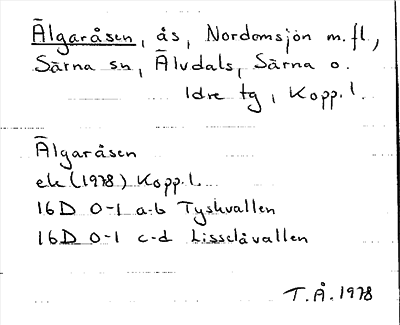 Älgaråsen, ås, Nordomsjön m.fl,
Särna sn, Älvdals, Särna o.
Idre tg, Kopp. l.
Älgaråsen
ek (1978) Kopp. l.
16D 0-1 a-b Tyskvallen
16D 0-1 c-d Lissclåvallen
T.Å. 1978